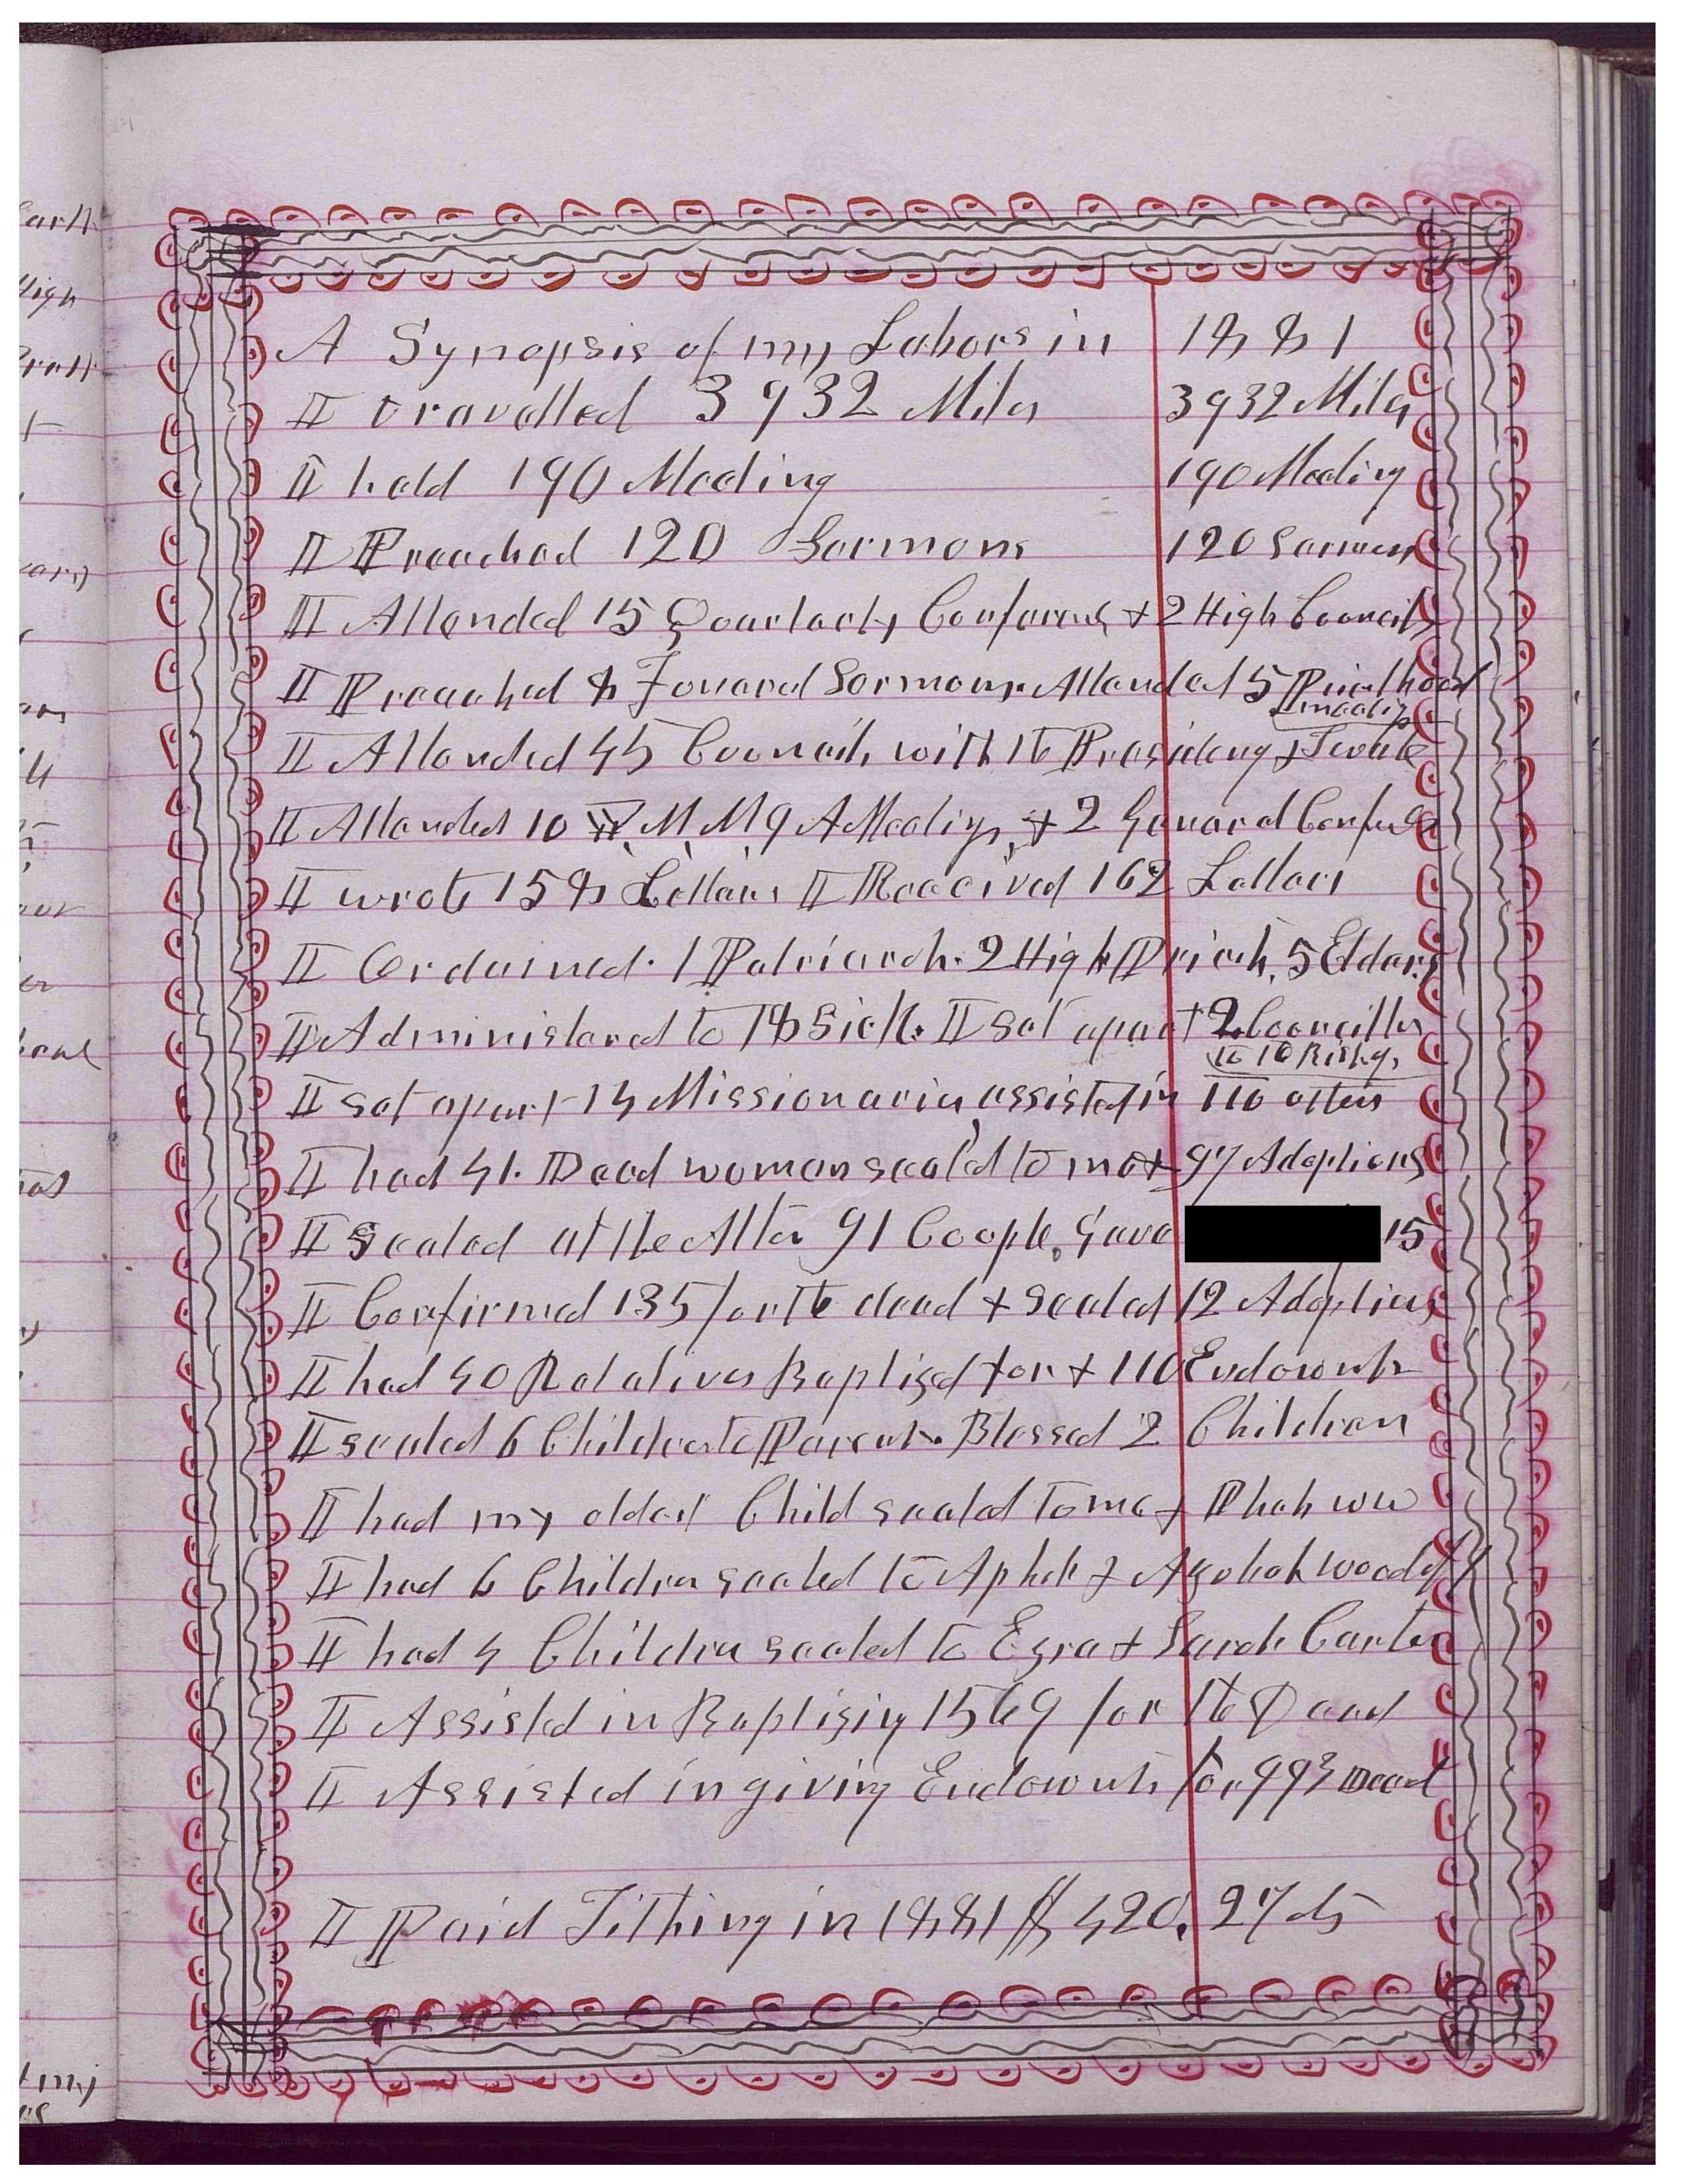 A Synopsis of my Labors in 1881
I travelled 3932 Miles 3932 Miles
I held 190 Meeting 190 Meeting
I Preached 120 Sermons 120 Sermons
I Attended 15 Quarterly Conferenes + 2 High Councils
I Preached 8 Foneral Sermons. Attended 5 Priesthood
meetings
I Attended 45 Councils with the Presidency + Twelve
I Attended 10 Y, M, M, 9 A Meetings, + 2 General Confers
I wrote 158 Letters I Received 162 Letters
I Ordained. 1 Patriarch. 2 High Priests, 5 Elders
I Administered to 78 Sick. I set apart 2 Councillors
to 10 Bishops
I set apart 14 Missionaries, assisted in 110 others
I had 41. Dead women sealed to me + 97 Adoptions
I sealed at the Alter 91 Couple, Gave 15
I Confirmed 135 for the dead + sealed 12 Adoptions
I had 40 Relatives Baptized for + 110 Endowmts
I sealed 6 Children to Parents. Blessed 2 Children
I had my oldest Child sealed to me + Pheb WW
I had 6 Children sealed to Aphek + Azubah Woodruff
I had 4 Children sealed to Ezra + Sarah Carter
I Assisted in Baptizing 1569 for the Dead
I Assisted in giving Endowmts for 993 Dead
I Paid Tithing in 1881 $420.27 cts